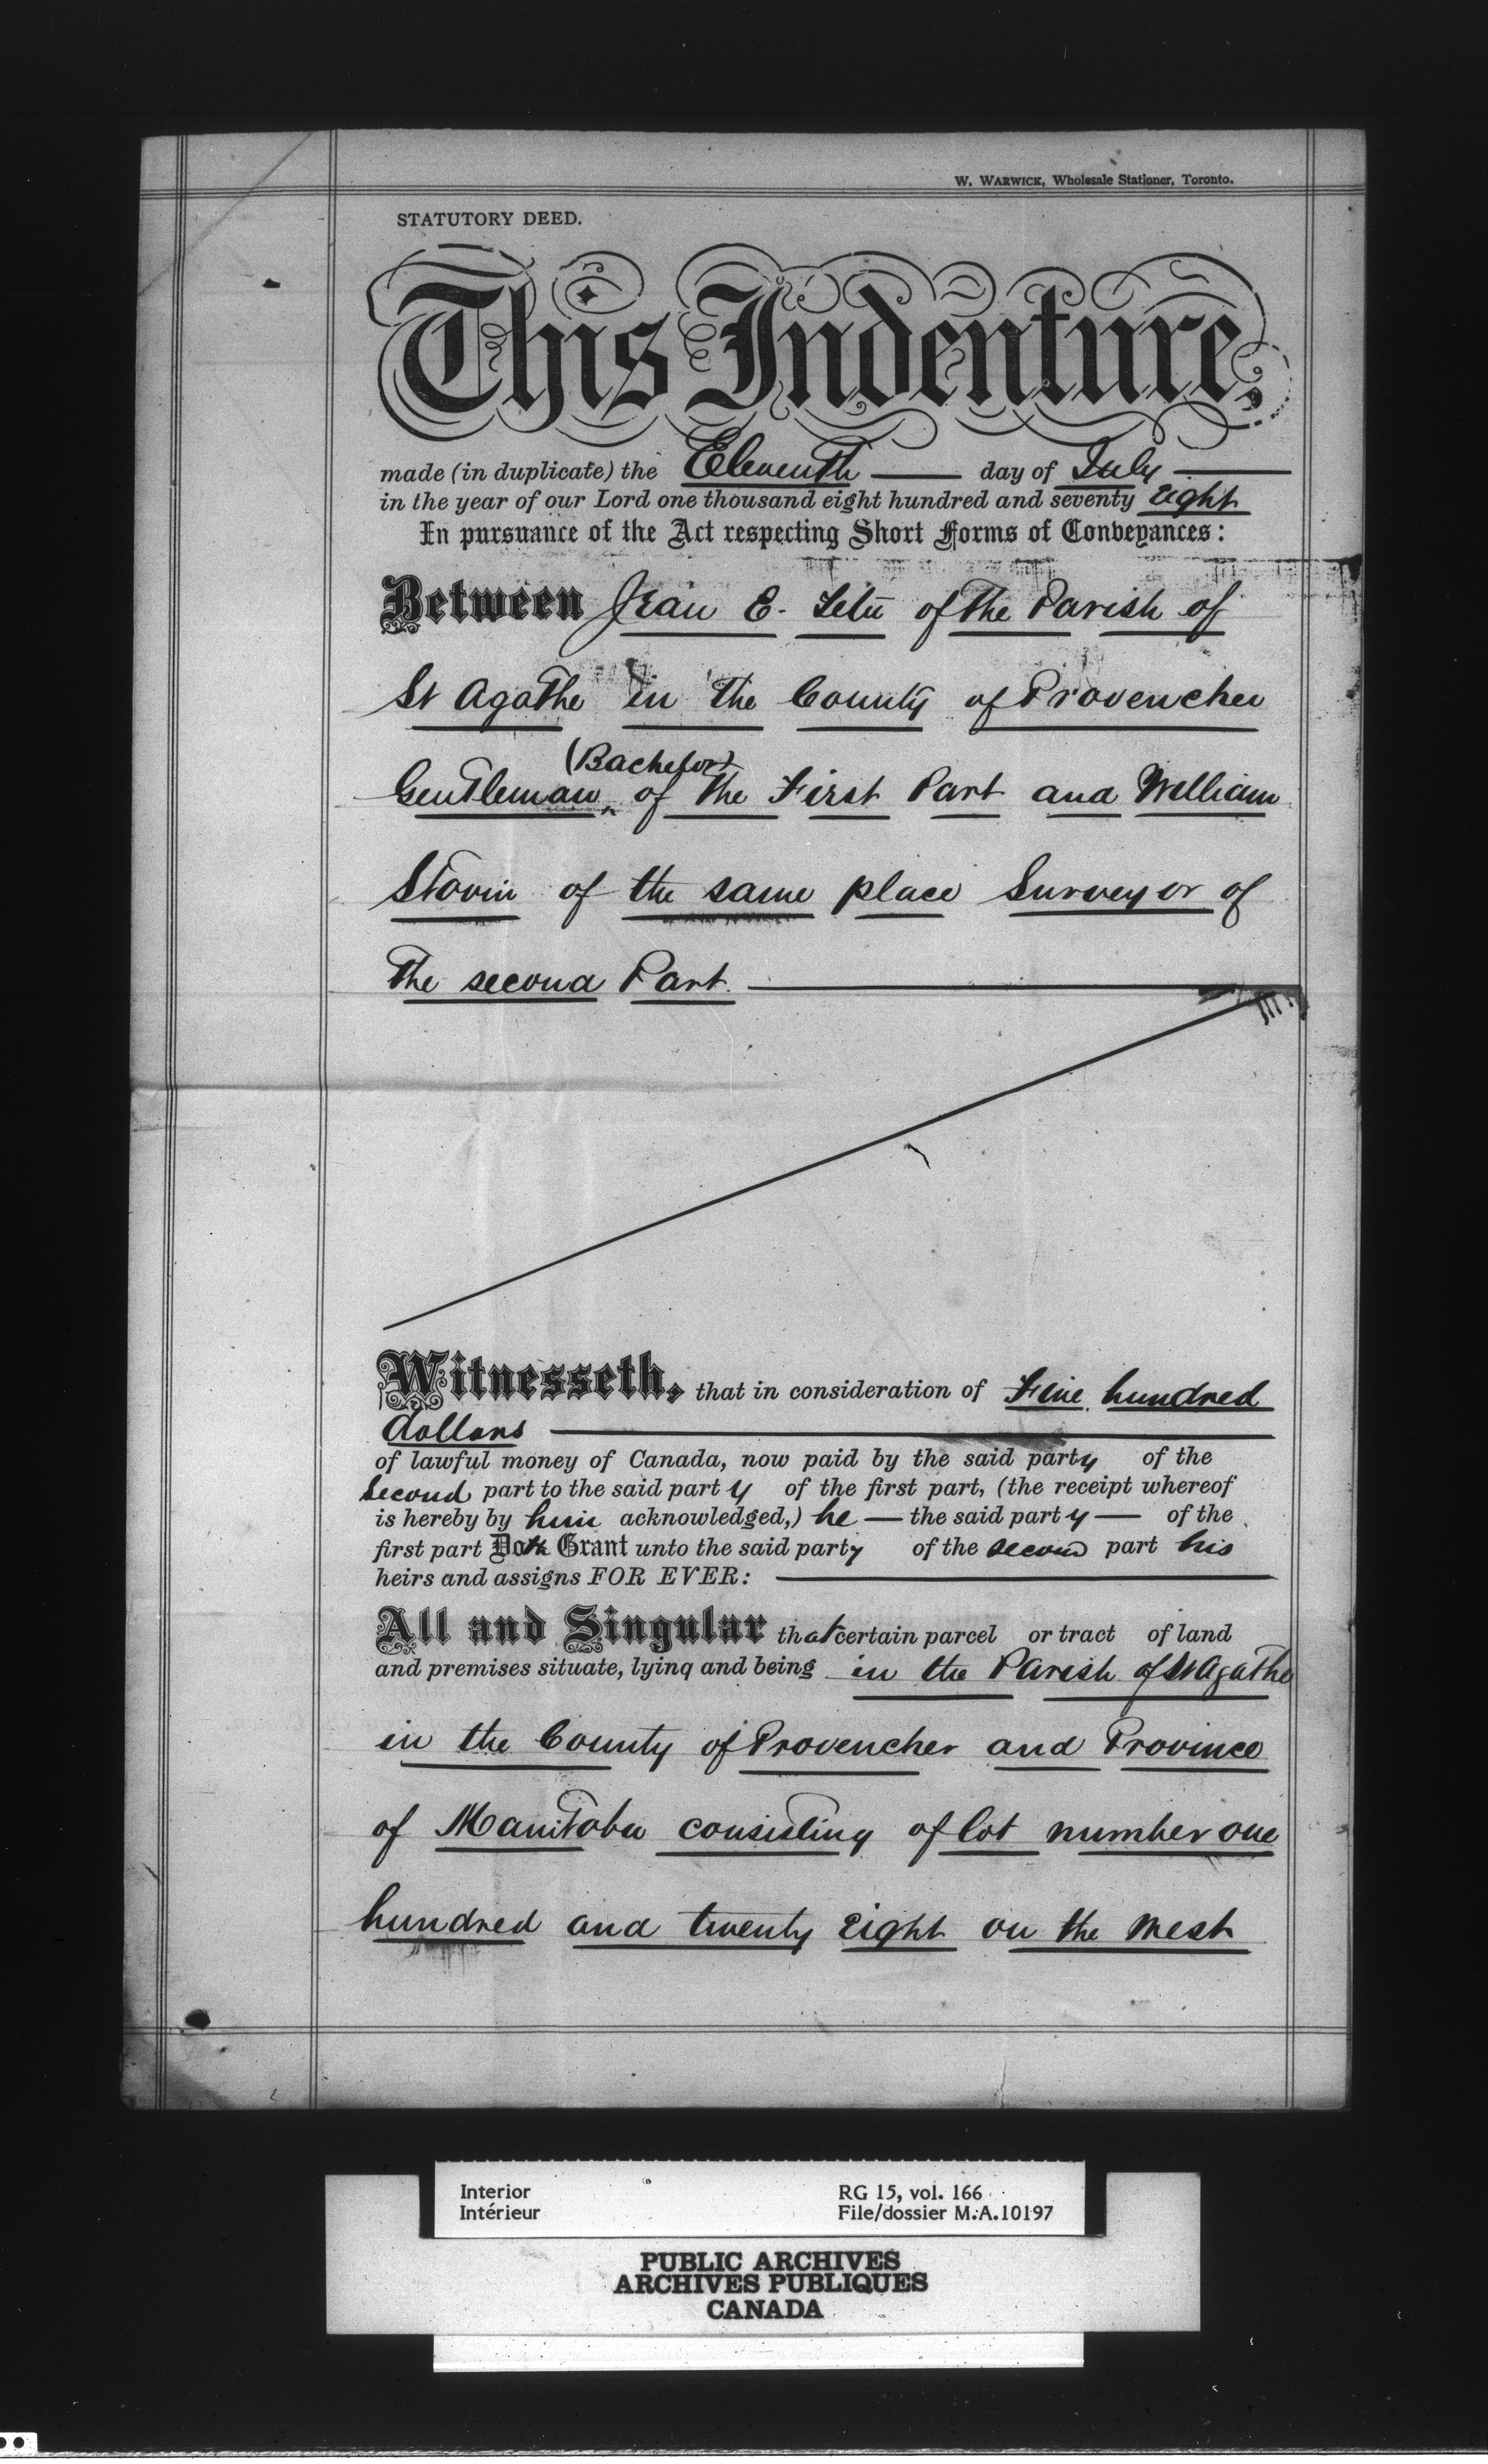 W. WARWICK, Wholesale Stationer, Toronto.
STATUTORY DEED.
This Indenture,
made (in duplicate) the Eleventh day of July
in the year of our Lord one thousand eight hundred and seventy Eight
In pursuance of the Act respecting Short Forms of Conveyances:
Between Jean E. of the Parish of
St Agathe in the County of Provencher
(Bachelor)
Gentleman of the First Part and William
of the same place Surveyor of
The second Part.
Witnesseth, that in consideration of Five hundred
dollars
of lawful money of Canada, now paid by the said party of the
Second part to the said party of the first part, (the receipt whereof
is hereby by him acknowledged,) he the said party of the
first part Doth Grant unto the said party of the second part his
heirs and assigns FOR EVER:
All and Singular that certain parcel or tract of land
and premises situate, lying and being in the Parish of St Agathe
in the County of Provencher and Province
of Manitoba consisting of lot number one
hundred and twenty Eight on the West
Interior
Intérieur
RG 15, vol. 166
File/dossier M.A.10197
PUBLIC ARCHIVES
ARCHIVES PUBLIQUES
CANADA